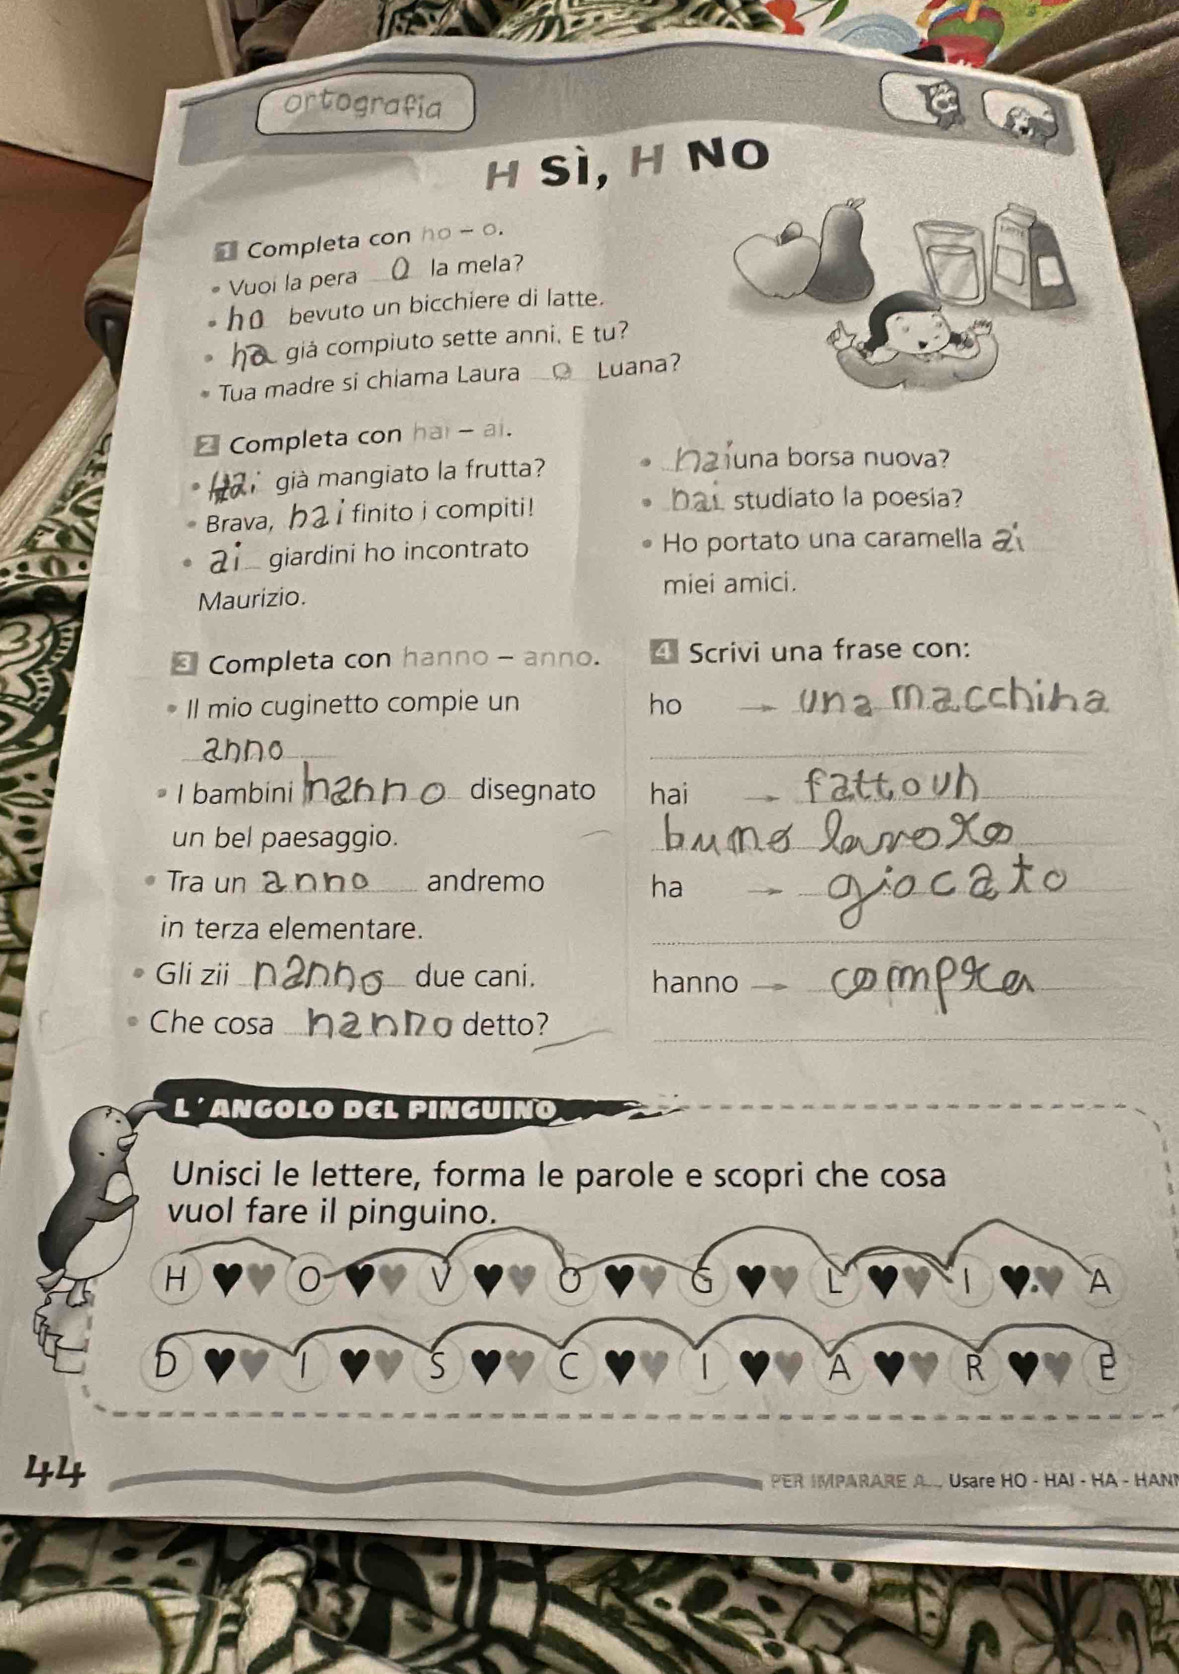 ortografia
H SÌ, H NO
1 Completa con ho – o.
• Vuoi la pera o la mela?
• ho bevuto un bicchiere di latte.
• ho già compiuto sette anni. E tu?
• Tua madre si chiama Laura o Luana?
2 Completa con hai – ai.
• Hai già mangiato la frutta?
• Brava, hai finito i compiti!
• ai giardini ho incontrato
Maurizio.
• hai una borsa nuova?
• hai studiato la poesia?
• Ho portato una caramella ai
miei amici.
3 Completa con hanno – anno.
• Il mio cuginetto compie un
anno
• I bambini hanno disegnato
un bel paesaggio.
• Tra un anno andremo
in terza elementare.
• Gli zii hanno due cani.
• Che cosa hanno detto?
4 Scrivi una frase con:
ho → una macchina
hai → fatto un
buno lavoro
ha → giocato
hanno →
L'ANGOLO DEL PINGUINO
Unisci le lettere, forma le parole e scopri che cosa
vuol fare il pinguino.
H O V O G L I A
D I S C I A R E
44
PER IMPARARE A... Usare HO - HAI - HA - HANN